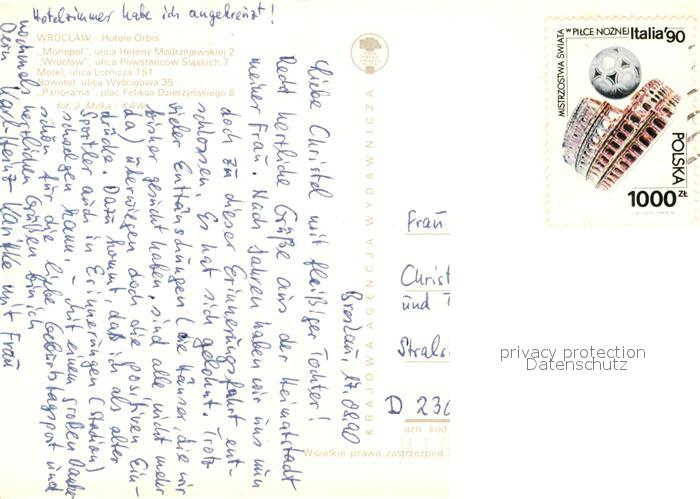 Hotelzimmer habe ich angekreuzt!
WROCŁAW – Hotele Orbis
„Monopol", ulica Heleny Modrzejewskiej 2
„Wrocław", ulica Powstańców Śląskich 7
Motel, ulica Lotnicza 151
Novotel, ulica Wyścigowa 35
„Panorama", plac Feliksa Dzierżyńskiego 8
fot. J. Milka - KAW
KRAJOWA AGENCJA WYDAWNICZA
Breslau, 17.08.90
Liebe Christel mit fleißiger Tochter!
Recht herzliche Grüße aus der Heimatstadt
meiner Frau. Nach Jahren haben wir uns nun
doch zu dieser Erinnerungsfahrt ent-
schlossen. Es hat sich gelohnt. Trotz
vieler Enttäuschungen (die Häuser, die wir
bisher gesucht haben, sind alle nicht mehr
da) überwiegen doch die positiven Ein-
drücke. Dazu kommt, daß ich als alter
Sportler auch in Erinnerungen (Stadion)
schwelgen kann. – Mit einem großen Danke
schön für die liebe Geburtstagspost und
nochmals herzlichen Grüßen bin ich
Dein Karl-Heinz mit Frau
MISTRZOSTWA ŚWIATA W PIŁCE NOŻNEJ Italia'90
POLSKA
1000 ZŁ
Frau
Christ
und T
Strals
D 230
ozn kod
Wszelkie prawa zastrzeżone
privacy protection
Datenschutz